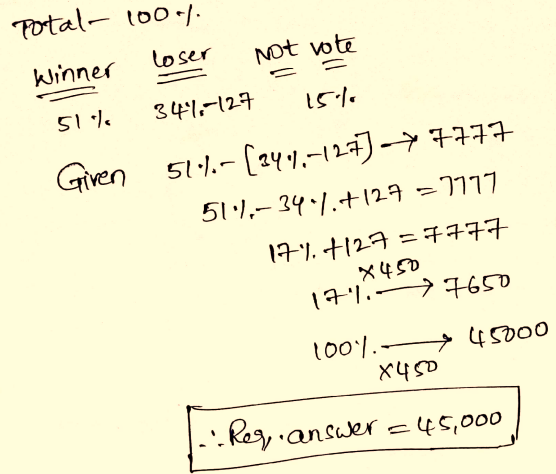 Total - 100%.
Winner loser NOt vote
51% 34%-127 15%
Given 51%-[34%-127] → 7777
51%-34%+127 = 7777
17%+127 = 7777
17% ×450 → 7650
100% → 45000
×450
∴ Req. answer = 45,000